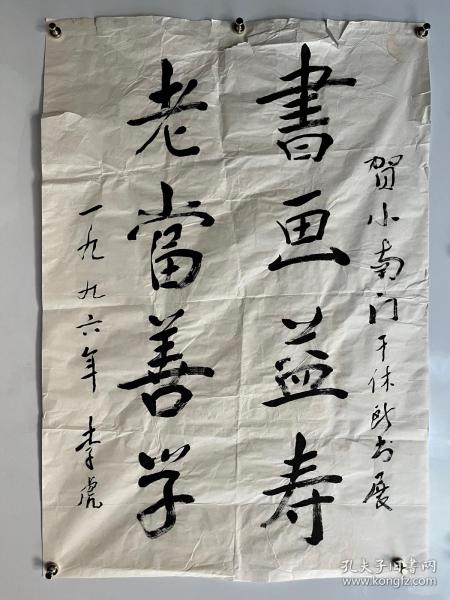 贺小南门干休所书展
書画益寿
老當善学
一九九六年 李虎
孔夫子旧书网
www.kongfz.com